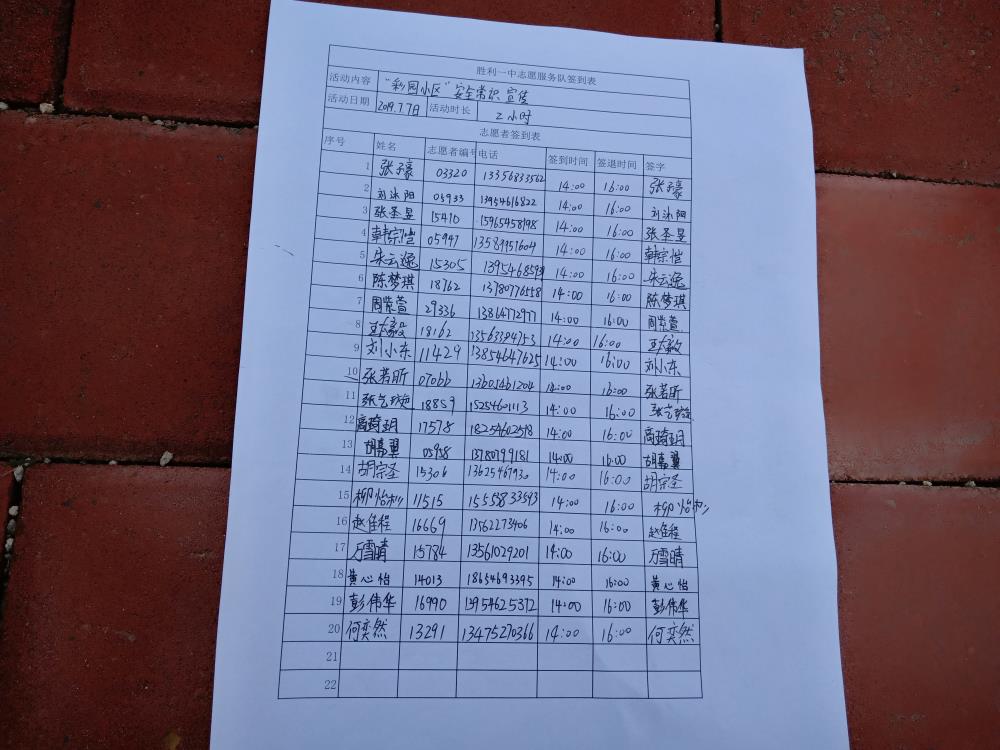 胜利一中志愿服务队签到表
活动内容 "彩园小区"安全常识宣传
活动日期 2019.7.7日 活动时长 2小时
志愿者签到表
序号 姓名 志愿者编号 电话 签到时间 签退时间 签字
1 张子豪 03320 13356833562 14:00 16:00 张子豪
2 刘沐阳 05933 13954616822 14:00 16:00 刘沐阳
3 张圣昱 15410 15965458198 14:00 16:00 张圣昱
4 韩宗恺 05947 13589957604 14:00 16:00 韩宗恺
5 朱云逸 15305 14:00 16:00 朱云逸
6 陈梦琪 18762 13780776558 14:00 16:00 陈梦琪
7 周紫萱 29336 13864772977 14:00 16:00 周紫萱
8 18162 13563384753 14:00 16:00
9 刘小东 11429 13854647625 14:00 16:00 刘小东
10 张若昕 07066 13605461204 14:00 16:00 张若昕
11 张艺璇 18859 15254601113 14:00 16:00 张艺璇
12 高琦玥 17578 18254602518 14:00 16:00 高琦玥
13 胡嘉翼 05958 13780799181 14:00 16:00 胡嘉翼
14 胡宗圣 15306 13625467930 14:00 16:00 胡宗圣
15 柳怡杉 11515 15558833593 14:00 16:00 柳怡杉
16 赵佳程 16669 13562273406 14:00 16:00 赵佳程
17 万雪晴 15784 13561029201 14:00 16:00 万雪晴
18 黄心怡 14013 18654693395 14:00 16:00 黄心怡
19 彭伟华 16990 13954625372 14:00 16:00 彭伟华
20 何奕然 13291 13475270366 14:00 16:00 何奕然
21
22